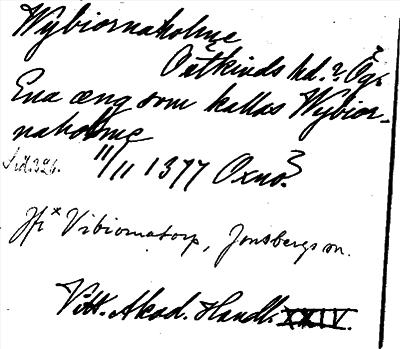 Wybiornaholme
Östkinds hd.? Ög.
Ena æng som kallas Wybior-
naholme
11/11 1377 Oxnö?
Jfr * Vibiornatorp, Jonsbergs sn.
Vitt. Akad. Handl. XXIV.